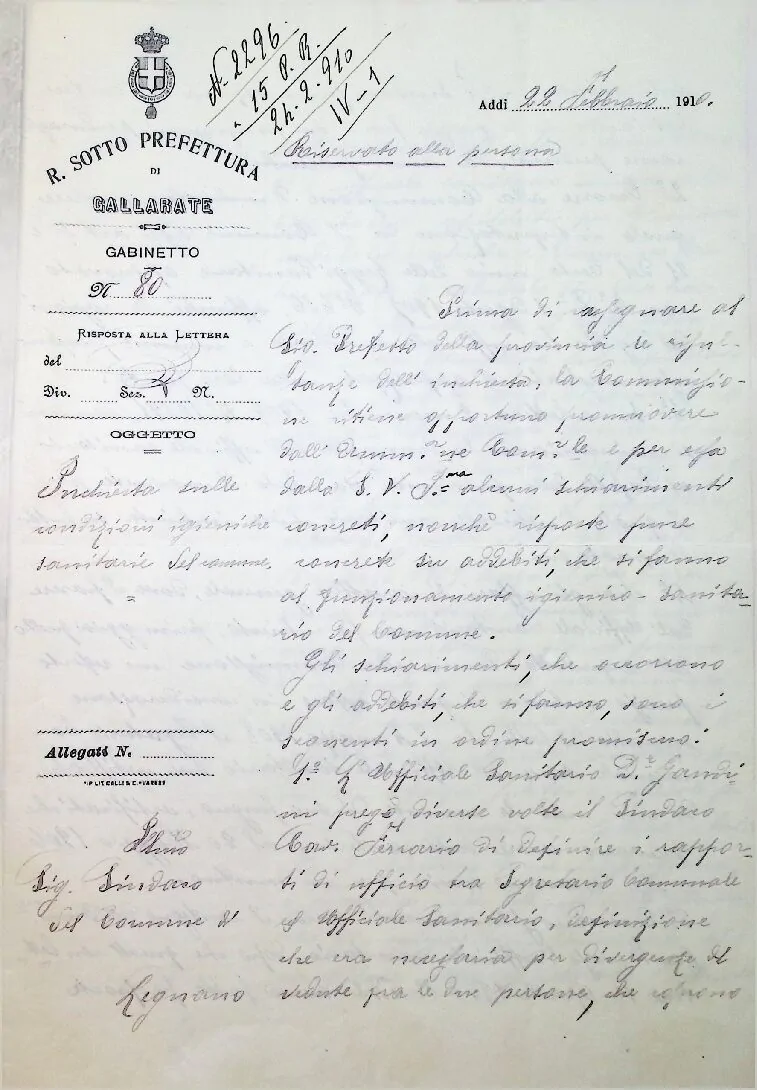 N. 2296
15 P. R.
24-2-910
IV-1
Addì 22 Febbraio 1910.
R. SOTTO PREFETTURA
DI
GALLARATE
GABINETTO
N. 80
RISPOSTA ALLA LETTERA
del
Div. Sez. N.
OGGETTO
Inchiesta sulle
condizioni igieniche
sanitarie del comune.
Allegati N.
Ill.mo
Sig. Sindaco
del Comune di
Legnano
Riservata alla persona
Prima di rassegnare al
Sig. Prefetto della provincia le risul-
tanze dell'inchiesta, la Commissio-
ne ritiene opportuno promuovere
dall'Amm.ne Com.le e per essa
dalla S. V. I.ma alcuni schiarimenti
concreti, nonché risposte pure
concrete su addebiti, che si fanno
al funzionamento igienico-sanita-
rio del Comune.
Gli schiarimenti, che occorrono
e gli addebiti, che si fanno, sono i
seguenti in ordine promiscuo:
1.º L'Ufficiale Sanitario D.r Gandi-
ni pregò diverse volte il Sindaco
Cav. Ferrario di definire i rappor-
ti di ufficio tra Segretario Comunale
ed Ufficiale Sanitario, definizione
che era necessaria per divergenze di
vedute fra le due persone, che